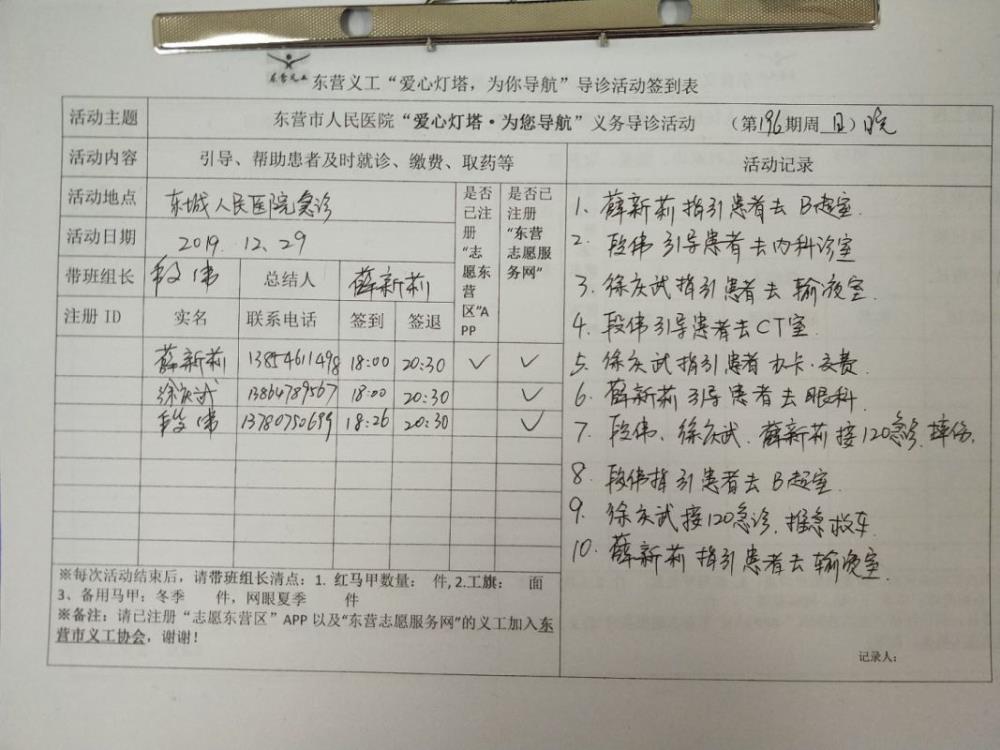 东营义工
东营义工“爱心灯塔，为你导航”导诊活动签到表
活动主题 东营市人民医院“爱心灯塔·为您导航”义务导诊活动 （第196期周日）晚
活动内容 引导、帮助患者及时就诊、缴费、取药等 活动记录
活动地点 东城人民医院急诊
活动日期 2019.12.29
是否已注册“志愿东营区”APP
是否已注册“东营志愿服务网”
带班组长 段伟 总结人 薛新莉
注册 ID 实名 联系电话 签到 签退
薛新莉 13854611498 18:00 20:30 ✓ ✓
徐庆武 13864789567 18:00 20:30 ✓
段伟 13780750699 18:26 20:30 ✓
1、薛新莉指引患者去B超室.
2、段伟引导患者去内科诊室
3、徐庆武指引患者去输液室.
4、段伟引导患者去CT室.
5、徐庆武指引患者办卡·交费.
6、薛新莉引导患者去眼科.
7、段伟、徐庆武、薛新莉接120急诊.摔伤.
8、段伟指引患者去B超室.
9、徐庆武接120急诊.推急救车
10、薛新莉指引患者去输液室.
※每次活动结束后，请带班组长清点：1. 红马甲数量： 件,2.工旗： 面
3、备用马甲：冬季 件，网眼夏季 件
※备注：请已注册“志愿东营区”APP 以及“东营志愿服务网”的义工加入东
营市义工协会，谢谢！
记录人：